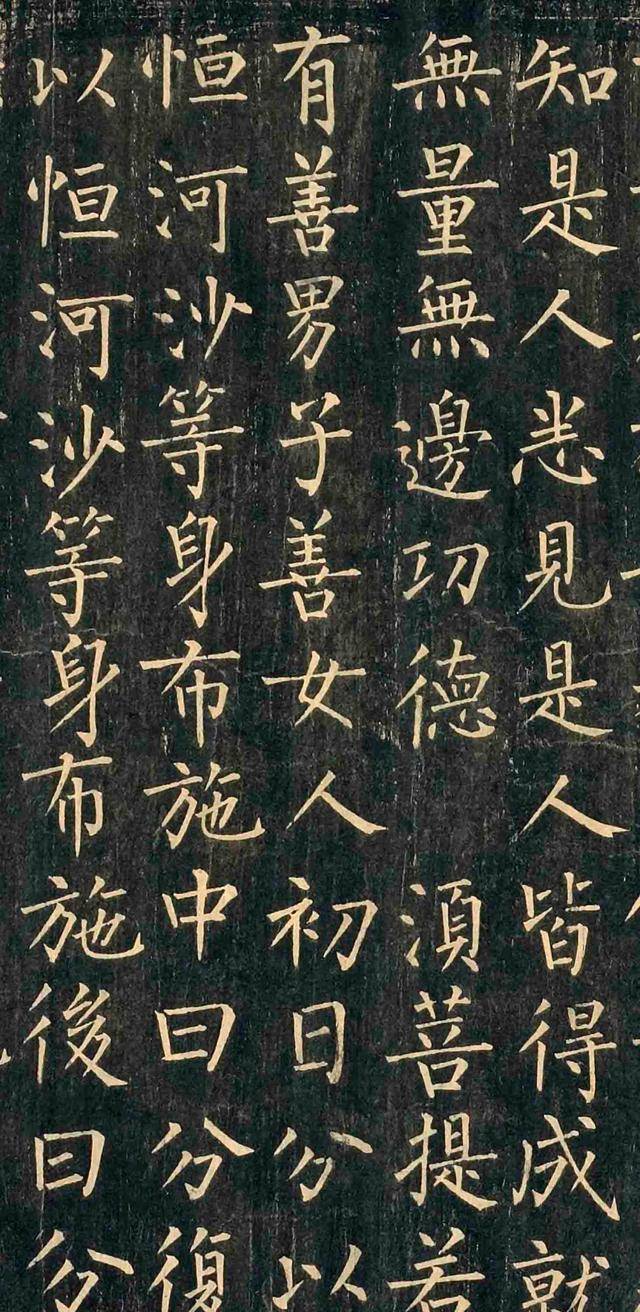 知是人悉見是人皆得成就
無量無邊功德 須菩提若
有善男子善女人初日分以
恒河沙等身布施中日分復
以恒河沙等身布施後日分